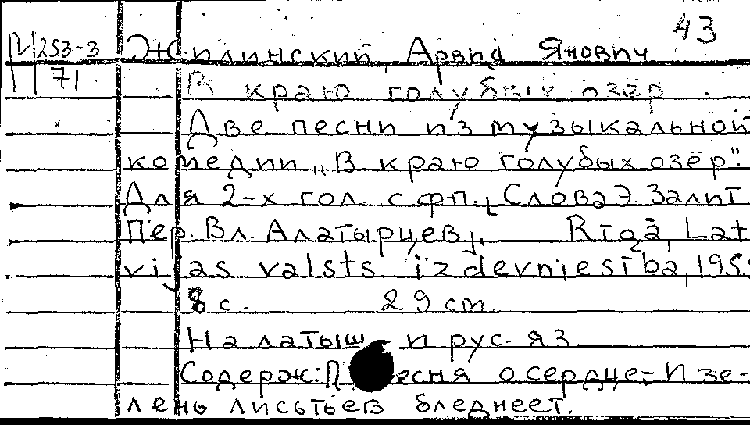 43
П 253-3 Жилинский, Арвид Янович
71
В краю голубых озёр.
Две песни из музыкальной
комедии „В краю голубых озёр".
Для 2-х гол. с фп. Слова Э. Залит
Пер. Вл. Алатырцев. Rīgā, Lat
vijas valsts izdevniesība, 195
8 с. 29 cm.
На латыш и рус. яз
Содерж: Песня о сердце.- И зе-
лень листьев бледнеет.